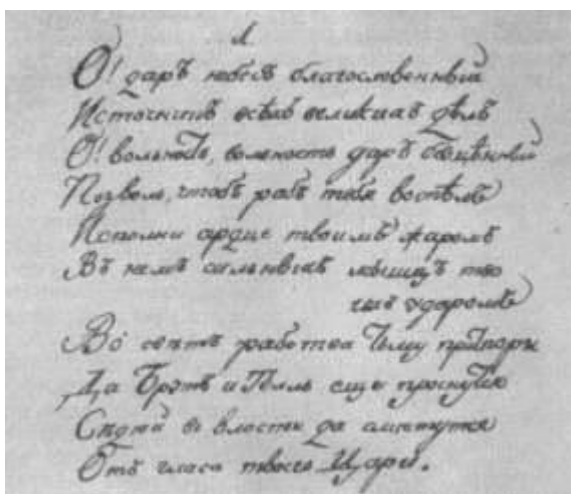 1
О! даръ небесъ благословенный
Источникъ всѣхъ великихъ дѣлъ
О! вольность, вольность даръ безцѣнный
Позволь, чтобъ рабъ тебя воспѣлъ
Исполни сердце твоимъ жаромъ
Въ немъ сильныхъ мышцъ тво
имъ ударомъ
Во свѣтъ рабства тьму претвори
Да Брутъ и Телль еще проснутся
Сѣдяй во власти да смятутся
Отъ гласа твоего Цари.